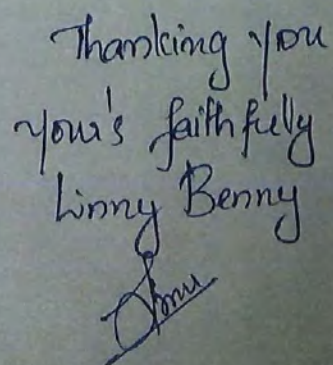 Thanking you
your's faithfully
Linny Benny